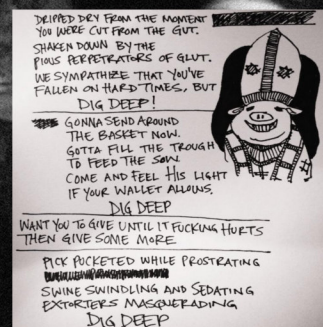 DRIPPED DRY FROM THE MOMENT
YOU WERE CUT FROM THE GUT.
SHAKEN DOWN BY THE
PIOUS PERPETRATORS OF GLUT.
WE SYMPATHIZE THAT YOU'VE
FALLEN ON HARD TIMES, BUT
DIG DEEP!
GONNA SEND AROUND
THE BASKET NOW.
GOTTA FILL THE TROUGH
TO FEED THE SOW.
COME AND FEEL HIS LIGHT
IF YOUR WALLET ALLOWS.
DIG DEEP
WANT YOU TO GIVE UNTIL IT FUCKING HURTS
THEN GIVE SOME MORE
PICK POCKETED WHILE PROSTRATING
SWINE SWINDLING AND SEDATING
EXTORTERS MASQUERADING
DIG DEEP